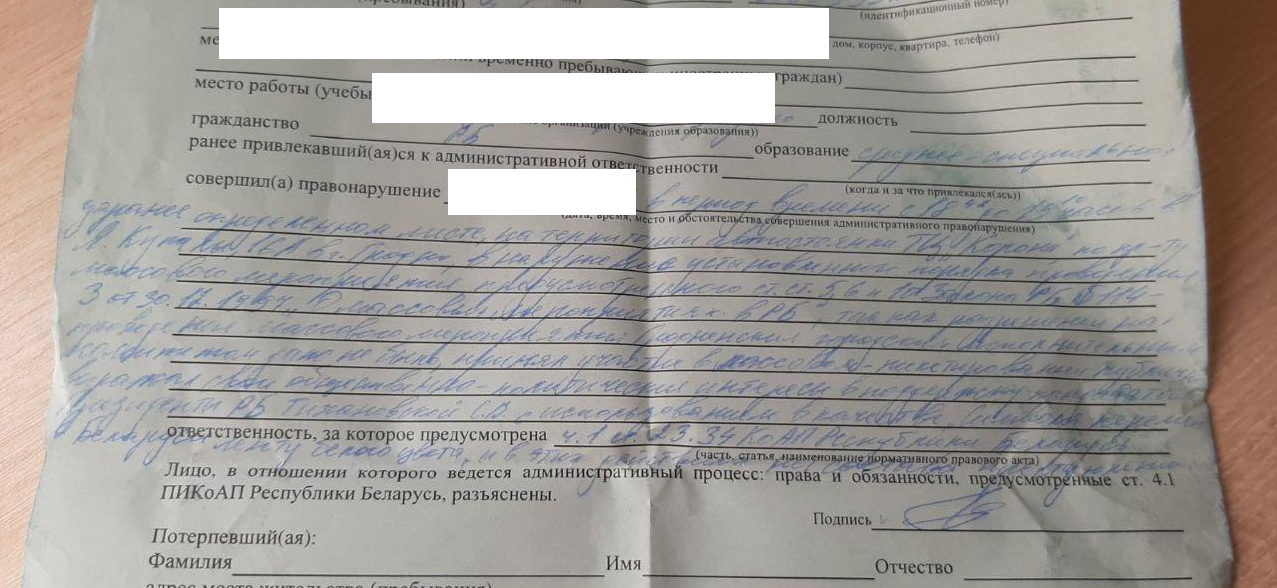 (идентификационный номер)
ме
дом, корпус, квартира, телефон)
временно пребывающ граждан)
место работы (учебы
(учреждения образования)) должность
гражданство РБ образование средне-специальное
ранее привлекавший(ая)ся к административной ответственности
(когда и за что привлекался(ась))
совершил(а) правонарушение в период времени с до часов в
(дата, время, место и обстоятельства совершения административного правонарушения)
заранее определенном месте, на территории автостоянки ТЦ "Корона" по пр-ту
Я. Купалы, 16А в г. Гродно, в нарушение установленного порядка проведения
массового мероприятия, предусмотренного ст.ст. 5, 6 и 10 Закона РБ № 114-
З от 30.12.1997г. "О массовых мероприятиях в РБ", так как разрешения на
проведение массового мероприятия Гродненским городским исполнительным
комитетом дано не было, принял участие в массовом пикетировании, публично
выражал свои общественно-политические интересы в поддержку кандидата
Президенты РБ Тихановской С.В. с использованием в качестве символа
ответственность, за которое предусмотрена ч. 1 ст. 23.34 КоАП Республики Беларусь
(часть, статья, наименование нормативного правового акта)
Беларуси ленту белого цвета, и в этих
Лицо, в отношении которого ведется административный процесс: права и обязанности, предусмотренные ст. 4.1
ПИКоАП Республики Беларусь, разъяснены.
Подпись
Потерпевший(ая):
Фамилия Имя Отчество
адрес места жительства (пребывания)